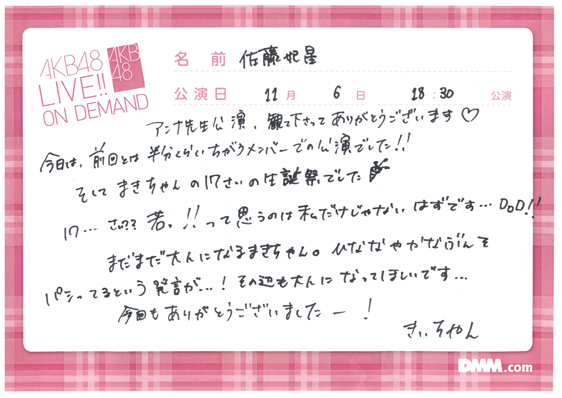 AKB48
LIVE!!
ON DEMAND
AKB
48
名 前 佐藤妃星
公演日 11月 6日 18:30 公演
アンナ先生公演、観て下さってありがとうございます♡
今日は、前回とは半分くらいちがうメンバーでの公演でした!!
そして まきちゃんの17さいの生誕祭でした
17… さい?? 若っ!!って思うのは私だけじゃないはずです…
まだまだ大人になるまきちゃん。
パシってるという発言が…! その辺も大人になってほしいです…
今回もありがとうございましたー!
きぃちゃん
DMM.com